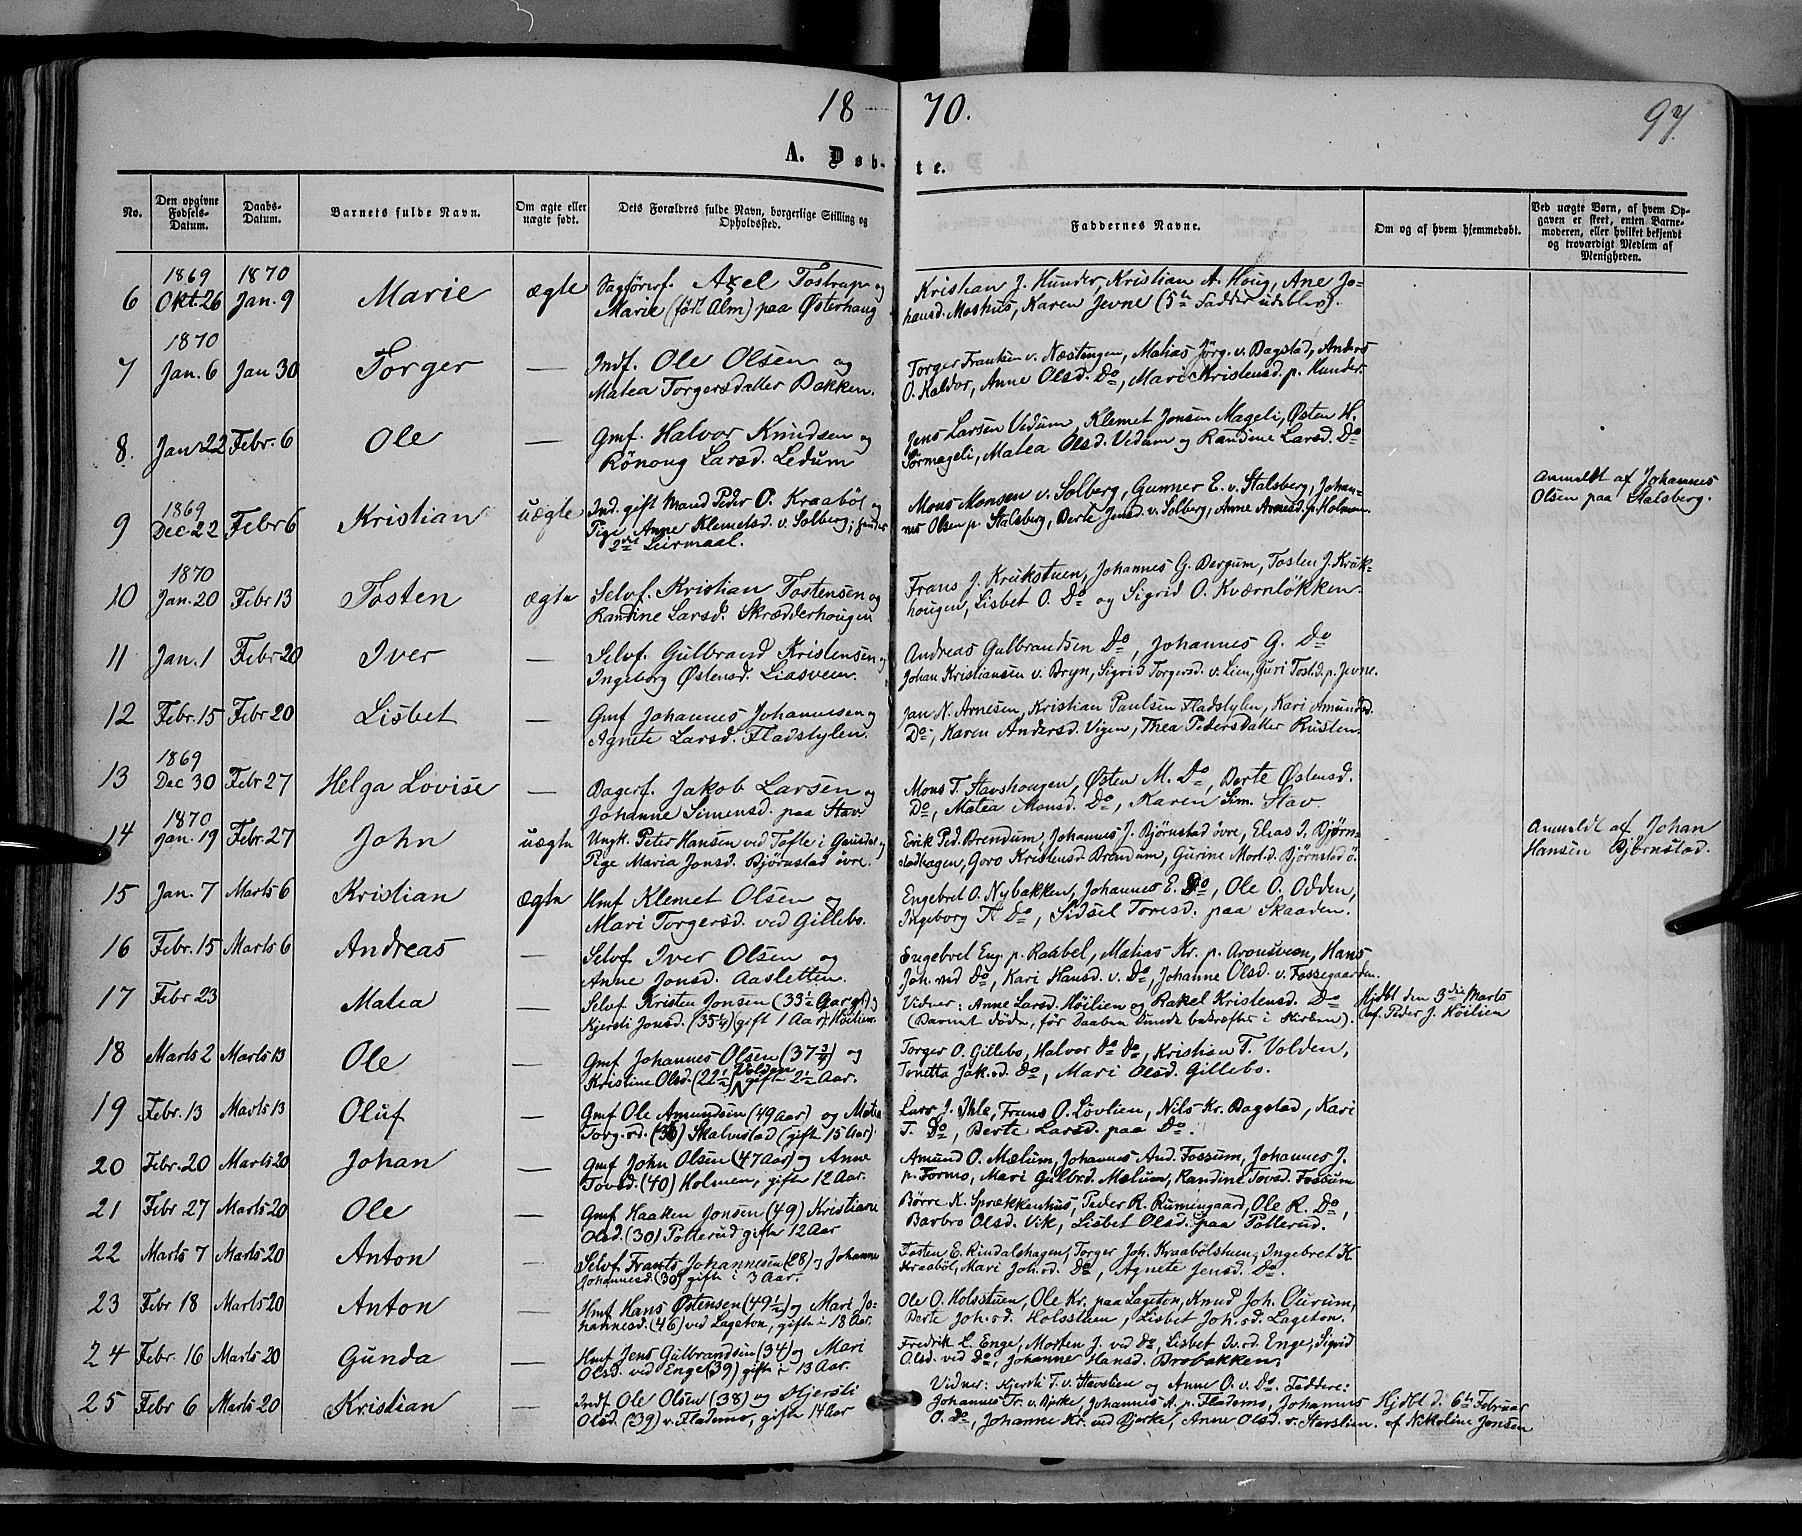 18 70. 97.
A. Døb- te.
No.
Den opgivne Fødsels-Datum.
Daabs-Datum.
Barnets fulde Navn.
Om ægte eller uægte født.
Dets Forældres fulde Navn, borgerlige Stilling og Opholdssted.
Faddernes Navne.
Om og af hvem hjemmedøbt.
Ved uægte Børn, af hvem Opgaven er skeet, enten Barnemoderen, eller hvilket bekjendt og troværdigt Medlem af Menigheden.
1869 1870
6 Okt. 26 Jan. 9 Marie ægte Sagførerf. Axel Tostrup og
Marie (født Alm) paa Østerhaug
Kristian J. Hunder, Kristian A. Houg, Ane Jo-
hansd. Moshus, Karen Jevne (5te Fadder udeblev).
1870
7 Jan. 6 Jan 30 Torger — Indf. Ole Olsen og
Matea Torgersdatter Bakken.
Torger Frantsen v. Næstingen, Matias Jörg. v. Bagstad, Anders
O. Kaldor, Anne Olsd. Do, Mari Kristensd. p. Hunder.
8. Jan 22 Febr. 6 Ole — Gmf. Halvor Knudsen og
Rönoug Larsd. Ledum
Jens Larsen Vedum, Klemet Jonsen Mageli, Østen H.
Sörmageli, Matea Olsd. Vedum og Randine Larsd. Do
1869
9 Dec 22 Febr 6 Kristian uægte Ind. gift Mand Peder O. Kraaböl og
Pige Anne Klemetsd. v. Solberg; hendes
2det Leirmaal.
Mons Monsen v. Solberg, Gunner E. v. Stalsberg, Johan-
nes Olsen p. Stalsberg, Berte Jensd. v. Solberg, Anne Arnesd. p. Holmen
Anmeldt af Johannes
Olsen paa Stalsberg.
1870
10 Jan. 20 Febr 13 Tosten ægte Selvf. Kristian Tostensen og
Randine Larsd. Skrædderhougen
Frans J. Krukstuen, Johannes G. Bergum, Tosten J. Kruk-
hougen, Lisbet O. Do og Sigrid O. Kværnløkken.
11 Jan. 1 Febr 20 Iver — Selvf. Gulbrand Kristensen og
Ingeborg Østensd. Liasveen.
Andreas Gulbrandsen Do, Johannes G. Do
Johan Kristiansen v. Bryn, Sigrid Torgersd. v. Lien, Guri Tostd. p. Jevne.
12 Febr. 15 Febr 20 Lisbet — Gmf Johannes Johannessen og
Agnete Larsd. Fladstylen.
Jan N. Arnesen, Kristian Paulsen Fladstylen, Kari Amundsd.
Do, Karen Andersd. Vigen, Thea Pedersdatter Rusten.
1869
13 Dec 30 Febr 27 Helga Lovise — Bagerf. Jakob Larsen og
Johanne Simensd. paa Stav
Mons T. Stavshougen, Østen M. Do, Berte Østensd.
Do, Matea Monsd. Do, Karen Sim. Stav.
1870
14 Jan. 19 Febr. 27 John uægte Ungk. Peter Hansen ved Tofte i Gausdal og
Pige Maria Jonsd. Bjørnstad øvre.
Erik Ped. Brendum, Johannes J. Bjørnstad øvre, Elias I. Bjørn-
stadhagen, Goro Kristensd. Brendum, Gurine Mortsd. Bjørnstad ö.
Anmeldt af Johan
Hansen Bjørnstad.
15 Jan. 7 Marts 6 Kristian ægte Hmf Klemet Olsen og
Mari Torgersd. ved Gillebo.
Engebret O. Nybakken, Johannes E. Do, Ole O. Odden,
Ingeborg T. Do, Sidsel Toresd. paa Skaaden.
16 Febr. 15 Marts 6 Andreas — Selvf Iver Olsen og
Anne Jonsd. Aasletten.
Engebret Eng. p. Raabel, Matias Kr. p. Aronsveen, Hans
Joh. ved Do, Kari Hansd. v. Do, Johanne Olsd. v. Fossegaarden.
17 Febr 23 Matea — Selvf Kristen Jonsen (33½ Aar gl.) og
Kjersti Jonsd. (35¼) (gift 1 Aar). Høilien.
Vidner: Anne Larsd. Höilien og Rakel Kristensd. Do
(Barnet døde, før Daaben kunde bekræftes i Kirken).
Hjdbt den 3die Marts
af Peder J. Höilien
18 Marts 2 Marts 13 Ole — Gmf Johannes Olsen (37¾) og
Kristine Olsd. (22½) Volden gifte 2½ Aar.
Torger O. Gillebo, Halvor do do, Kristian T. Volden,
Tonetta Jak.sd. Do, Mari Olsd. Gillebo.
19 Febr. 13 Marts 13 Oluf — Gmf Ole Amundsen (49 Aar) og Matea
Torg.sd. (36) Skalmstad (gift 15 Aar).
Lars J. Ihle, Frans O. Lövlien, Nils Kr. Bagstad, Kari
T. Do, Berte Larsd. paa Do.
20 Febr. 20 Marts 20 Johan — Gmf John Olsen (47 Aar) og Anne
Tovsd. (40) Holmen, gifte 12 Aar.
Amund O. Mælum, Johannes And. Fossum, Johannes J.
p. Formo, Mari Gulbrd. Mælum, Randine Tovsd. Fossum
21 Febr 27 Marts 20 Ole — Gmf Haaken Jonsen (49) Kristiane
Olsd. (30) Potterud gifte 12 Aar
Börre K. Sprækkenhus, Peder R. Rumingaard, Ole R. Do,
Barbro Olsd. Vik, Lisbet Olsd. paa Potterud.
22 Marts 7 Marts 20 Anton — Selvf Frants Johannesen (28) og Johanne
Johannesd. (30) gifte i 3 Aar.
Tosten E. Rindalshagen, Torger Joh. Kraabölstuen, Ingebret K.
Kraaböl, Mari Joh.sd. Do, Agnete Jensd. Do.
23 Febr 18 Marts 20 Anton — Hmf Hans Østensen (49½) og Mari Jo-
hannesd. (46) ved Lageton, gifte i 18 Aar.
Ole O. Holsstuen, Ole Kr. paa Lageton, Knud Joh. Aurum,
Berte Joh.sd. Holsstuen, Lisbet Joh.sd. Lageton.
24 Febr. 16 Marts 20 Gunda — Hmf Jens Gulbrandsen (34) og Mari
Olsd. ved Enge (39) gifte i 13 Aar.
Fredrik L. Enge, Morten J. ved do, Lisbet Iv.sd. Enge, Sigrid
Olsd. ved do, Johanne Hansd. Brobakken.
25 Febr 6 Marts 20 Kristian — Indf Ole Olsen (38) og Kjersti
Olsd. (39) v. Flademo, gifte 14 Aar
Vidner: Kjersti T. v. Stavslien og Anne O. v. Do. Faddere:
Johannes Tr. v. Bjerke, Johannes A. p. Flademo, Johannes
O. do, Johanne Kr. ved Bjerke, Anne Olsd. v. Stavslien.
Hjdbt d. 6te Februar
af Nikoline Jensen